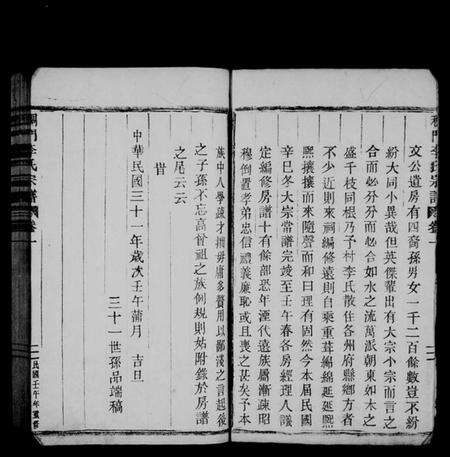 文公遺房有四裔孫男女一千二百餘數豈不紛
紛大同小異哉但英傑輩出有大宗小宗而言之
合而必分分而必合如水之流萬派朝東如木之
盛千枝同根乃子村李氏散住各州府縣鄉方者
不少近則來祠編修遠則自乘重茸綿綿延延熙
熙攘攘而來隨聲而和曰理有固然今本屆民國
辛巳冬大宗常譜完竣至壬午春各房經理人議
定編修房譜十有餘部恐年湮代遠族屬漸疎昭
穆倒置孝弟忠信禮義廉恥或且喪之甚矣予本
族中人學疏才拙毋庸多贅用以鄙淺之言起後
之子孫不忘高曾祖之族例規則姑附錄於房譜
之尾云云
旹
中華民國三十一年歲次壬午蒲月 吉旦
三十一世孫品端稿
李氏宗譜 卷一
民國壬午年重修